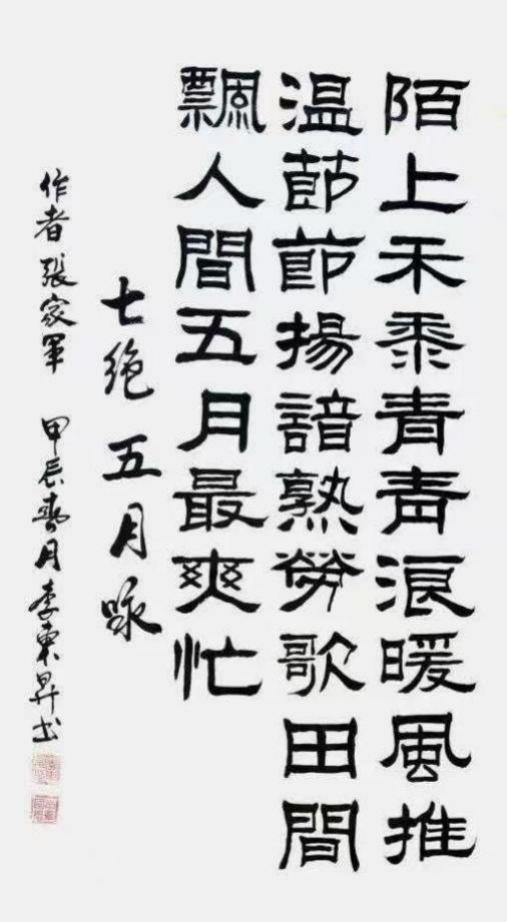 陌上禾黍青青浪暖風推
温節節揚諳熟勞歌田間
飄人間五月最爽忙
七绝 五月咏
作者張家軍 甲辰月李東昇书